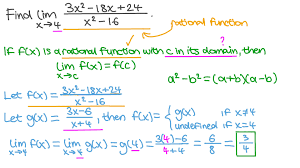 Find lim x→4 3x²-18x+24 / x²-16 .
rational function
?
If f(x) is a rational function with c in its domain, then
lim x→c f(x) = f(c)
a²-b²=(a+b)(a-b)
Let f(x) = 3x²-18x+24 / x²-16
Let g(x) = 3x-6 / x+4 , then f(x)= { g(x) if x≠4
undefined if x=4
lim x→4 f(x) = lim x→4 g(x) = g(4) = 3(4)-6 / 4+4 = 6/8 = 3/4